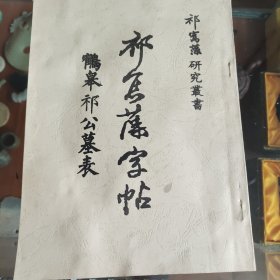 祁寯藻研究叢書
祁寯藻字帖
鶴皋祁公墓表